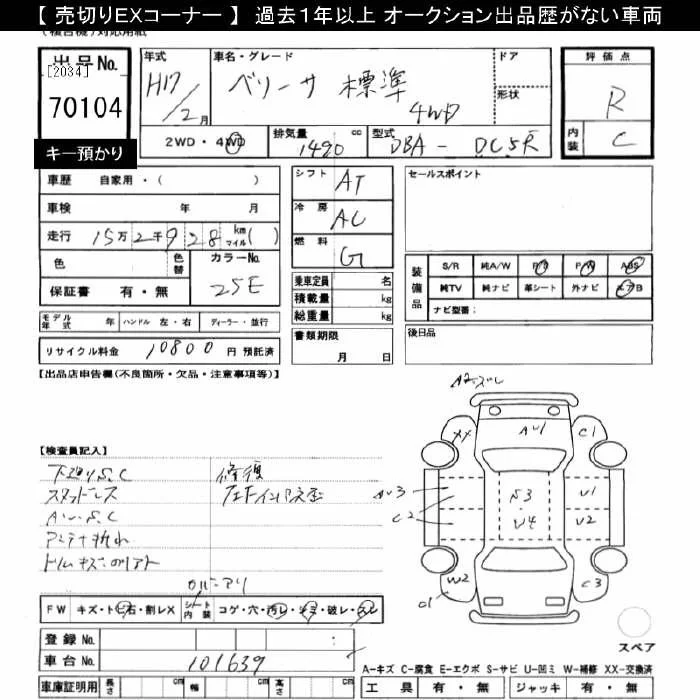 【 売切りEXコーナー 】 過去1年以上 オークション出品歴がない車両
(複合機)対応用紙
出品No.
[2034]
70104
キー預かり
年式
H17/2月
車名・グレード
ベリーサ 標準 4WD
ドア
形状
2WD・4WD
排気量 1490 cc
型式 DBA - DC5R
評価点
R
内装 C
車歴 自家用・( )
車検 年 月
走行 15万2千928 km マイル( )
色
色替
カラーNo. 25E
保証書 有・無
モデル年式 年 ハンドル 左・右 ディーラー・並行
リサイクル料金 10800 円 預託済
シフト AT
冷房 AC
燃料 G
乗車定員 名
積載量 kg
総重量 kg
書類期限
月 日
セールスポイント
装備品
S/R 純A/W P/S P/W ABS
純TV 純ナビ 革シート 外ナビ エアB
ナビ型番:
後日品
【出品店申告欄(不良箇所・欠品・注意事項等)】
【検査員記入】
下廻りS,C
スタッドレス
AW S,C
アンテナ折れ
修復
A2ズレ
XX
AU1
C1
AU3
C2
S3
U4
U1
U2
W2
C1
C3
スペア
FW キズ・トビ石・割レX
シート内装 コゲ・穴・汚レ・シミ・破レ・スレ
登録No. :
車台No. 101639
車庫証明用 長さ cm 幅 cm 高さ cm
A-キズ C-腐食 E-エクボ S-サビ U-凹ミ W-補修 XX-交換済
工具 有・無 ジャッキ 有・無